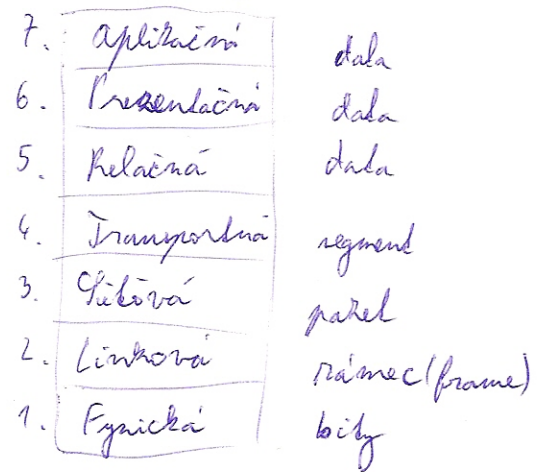 7. Aplikačná data
6. Prezentačná data
5. Relačná data
4. Transportná segment
3. Siťová paket
2. Linková rámec (frame)
1. Fyzická bity